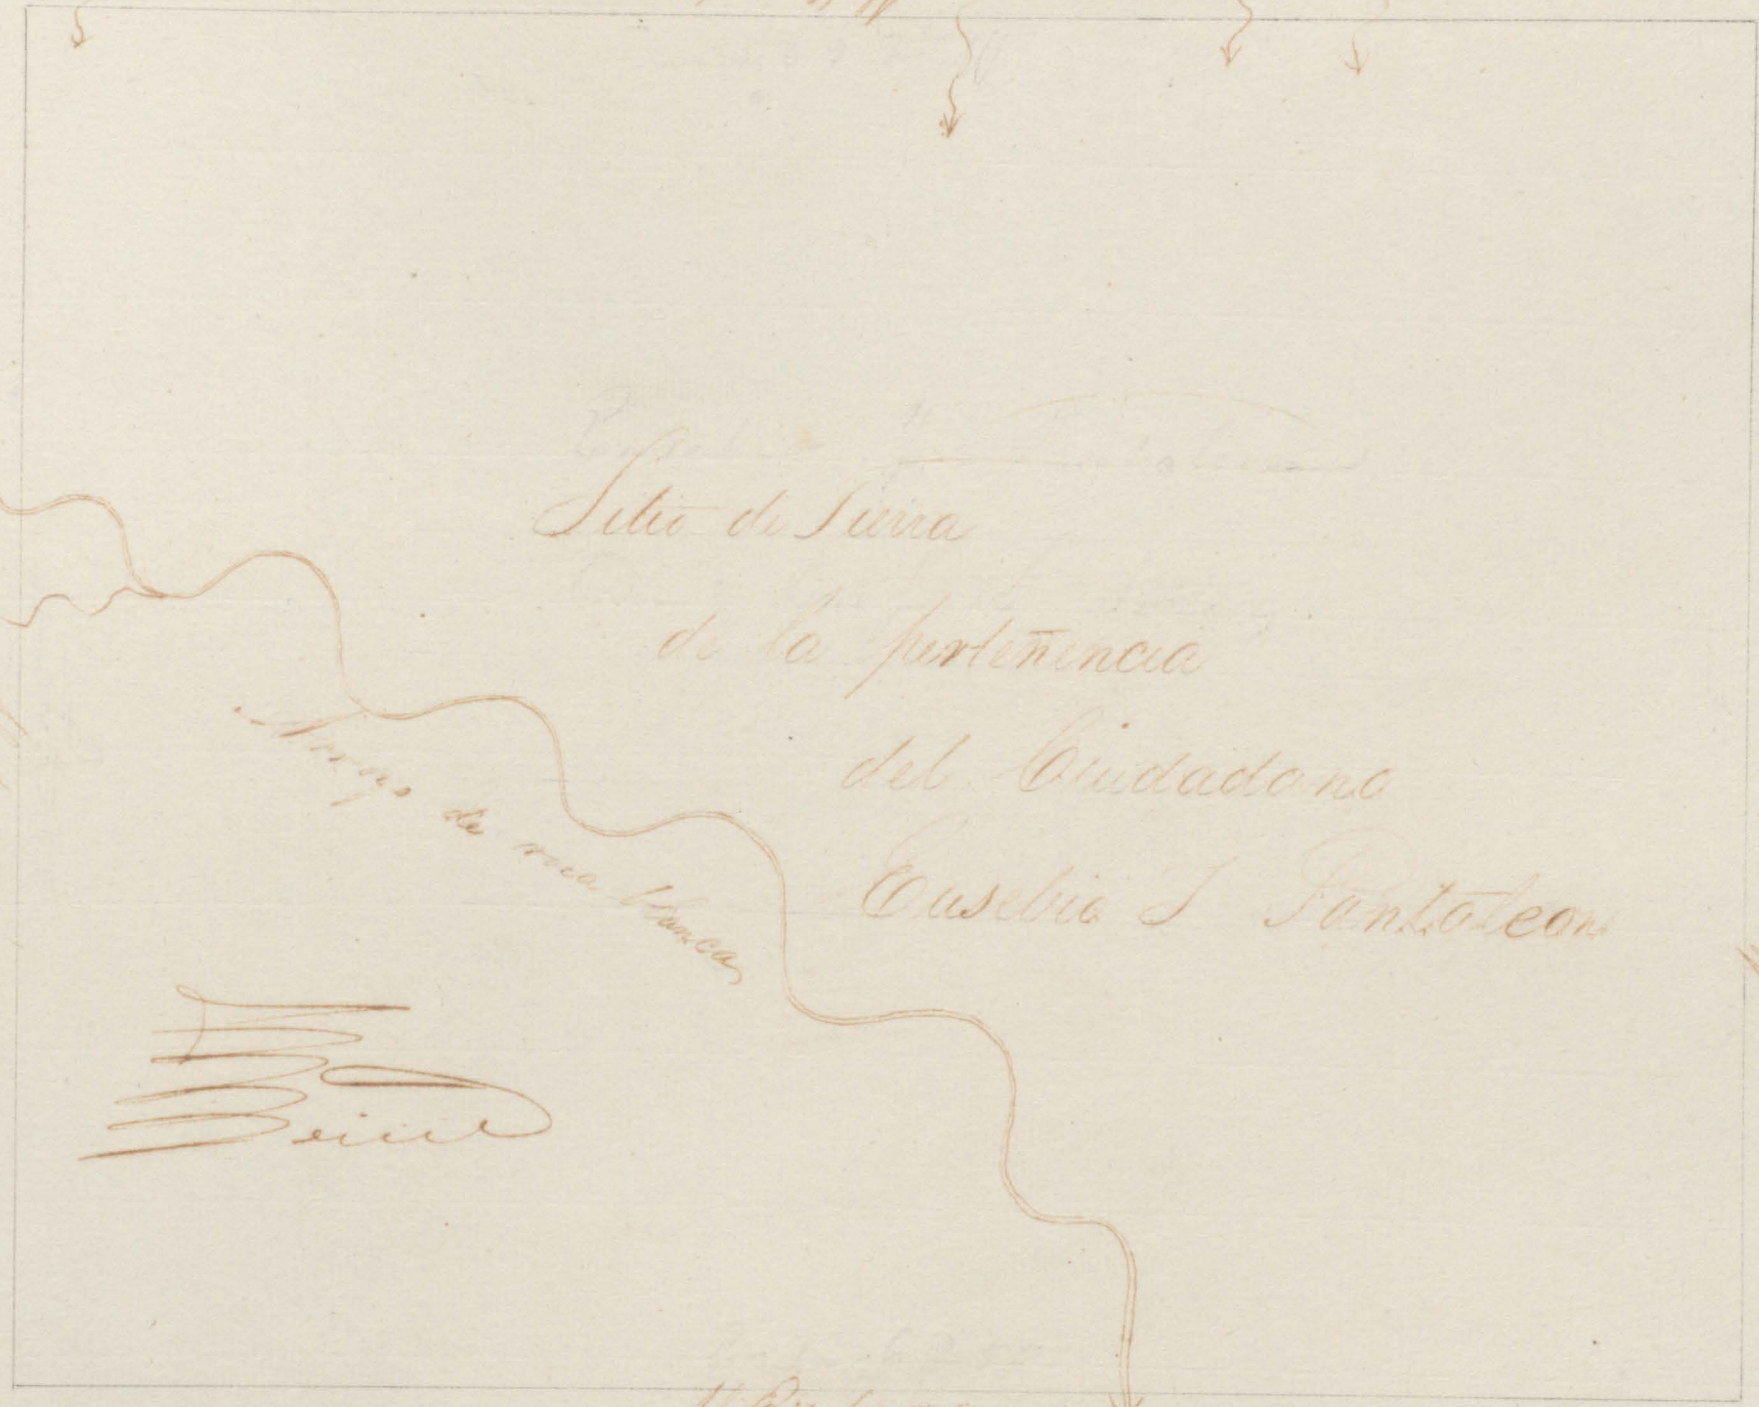 Sitio de Tierra
de la perteñencia
del Ciudadano
Eusebio J Pantaleon
Arroyo de rica blanca